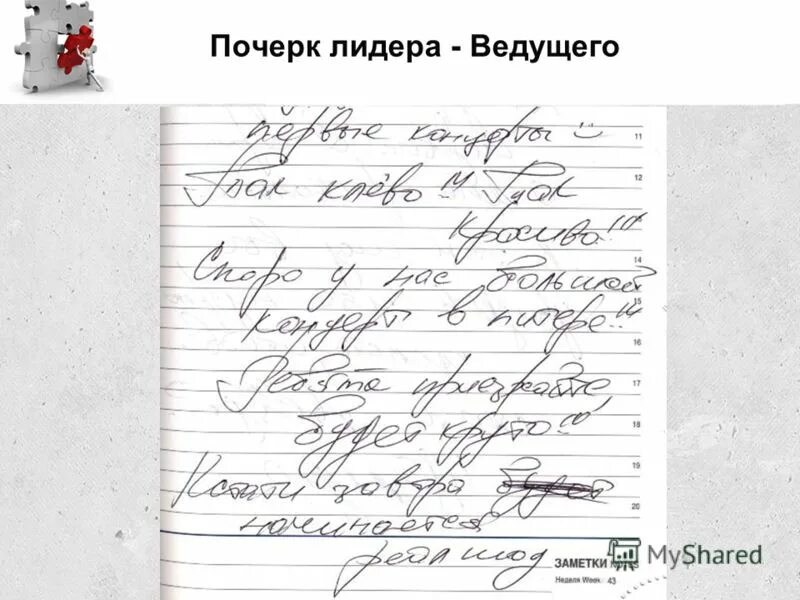 Почерк лидера - Ведущего
первые концерты
11
Так клёво!!! Так
12
красиво!!!
Скоро у нас большой
14
15
концерт в питере!!!
16
Ребята приезжайте
17
будет круто!!!
18
19
Кстати завтра
20
начинается
реал
ЗАМЕТКИ
Неделя Week 43
MyShared